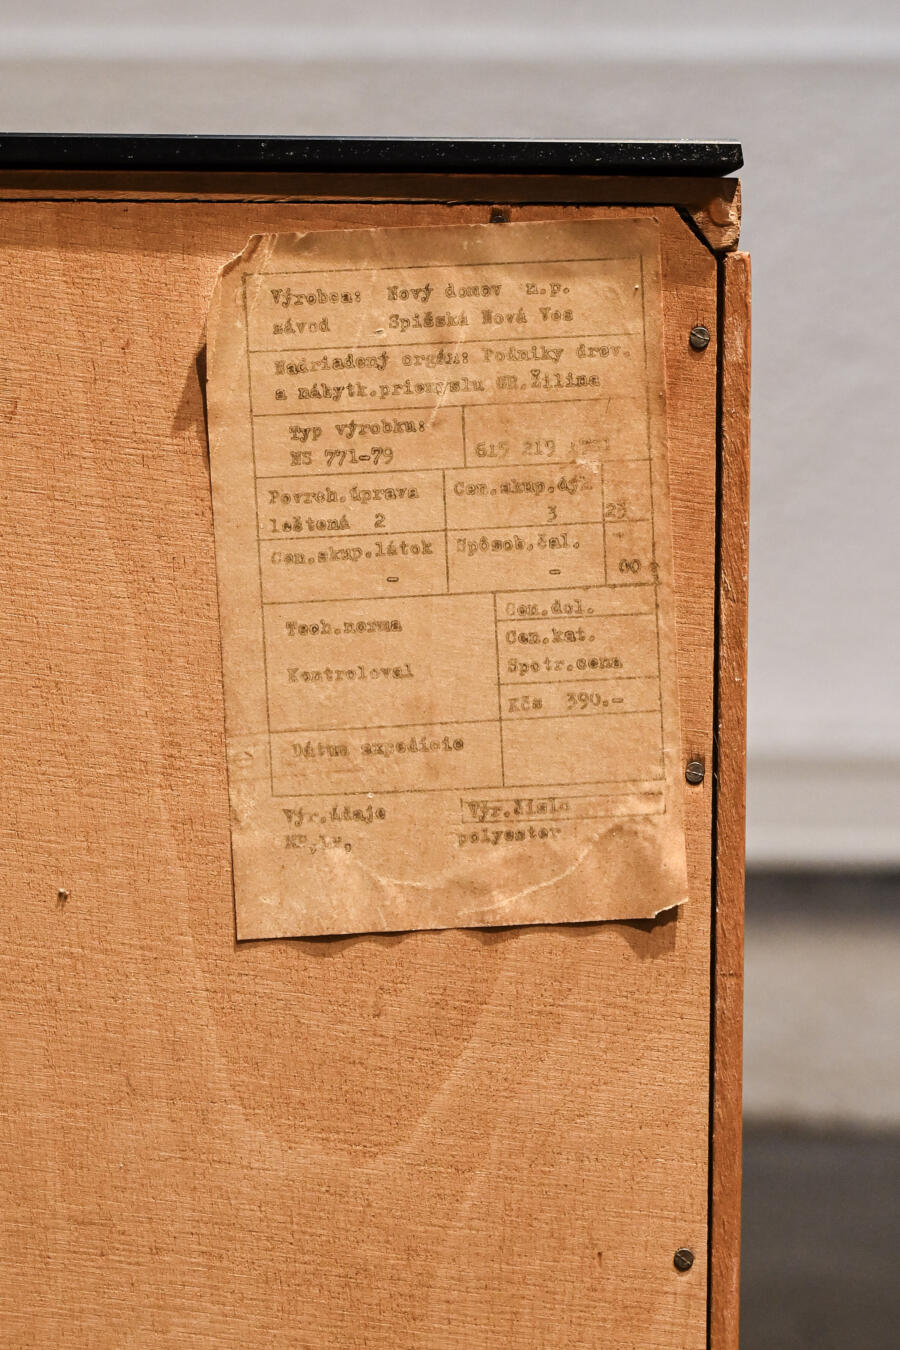 Výrobca: Nový domov n.p.
závod Spišská Nová Ves
Nadriadený orgán: Podniky drev.
a nábytk.priemyslu GR.Žilina
Typ výrobku:
NS 771-79
615 219
Povrch.úprava
leštená 2
Cen.skup.dýh
3
23
Cen.skup.látok
-
Spôsob.čal.
-
00
Tech.norma
Kontroloval
Cen.dol.
Cen.kat.
Spotr.cena
Kčs 390.-
Dátum expedície
Výr.údaje
Výr.číslo
polyester